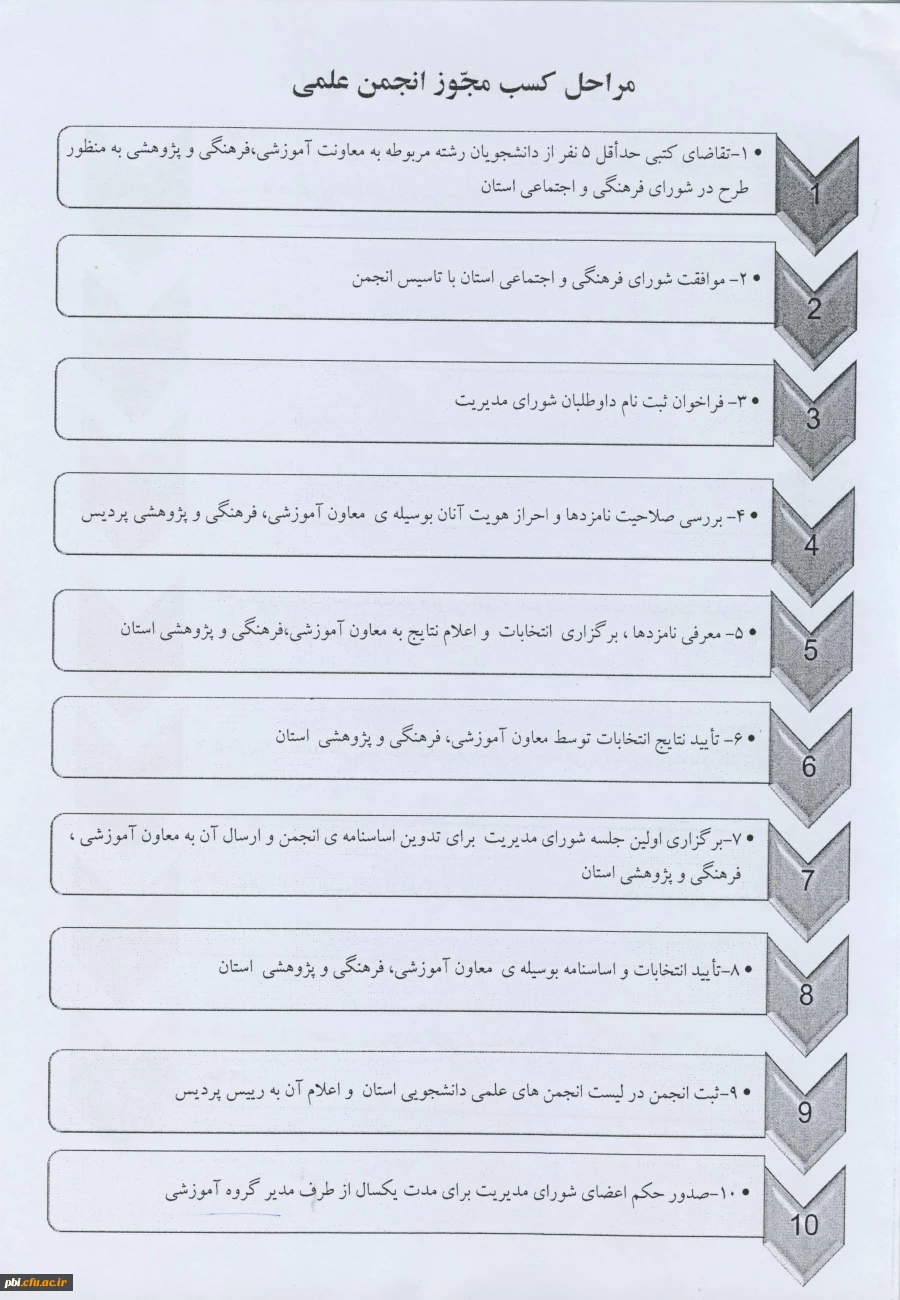 مراحل کسب مجّوز انجمن علمی
• ۱-تقاضای کتبی حدأقل ۵ نفر از دانشجویان رشته مربوطه به معاونت آموزشی،فرهنگی و پژوهشی به منظور
طرح در شورای فرهنگی و اجتماعی استان
1
• ۲- موافقت شورای فرهنگی و اجتماعی استان با تاسیس انجمن
2
• ۳- فراخوان ثبت نام داوطلبان شورای مدیریت
3
• ۴- بررسی صلاحیت نامزدها و احراز هویت آنان بوسیله ی معاون آموزشی، فرهنگی و پژوهشی پردیس
4
• ۵- معرفی نامزدها ، برگزاری انتخابات و اعلام نتایج به معاون آموزشی،فرهنگی و پژوهشی استان
5
• ۶- تأیید نتایج انتخابات توسط معاون آموزشی، فرهنگی و پژوهشی استان
6
• ۷-برگزاری اولین جلسه شورای مدیریت برای تدوین اساسنامه ی انجمن و ارسال آن به معاون آموزشی ،
فرهنگی و پژوهشی استان
7
• ۸-تأیید انتخابات و اساسنامه بوسیله ی معاون آموزشی، فرهنگی و پژوهشی استان
8
• ۹-ثبت انجمن در لیست انجمن های علمی دانشجویی استان و اعلام آن به رییس پردیس
9
• ۱۰-صدور حکم اعضای شورای مدیریت برای مدت یکسال از طرف مدیر گروه آموزشی
10
pbi.cfu.ac.ir